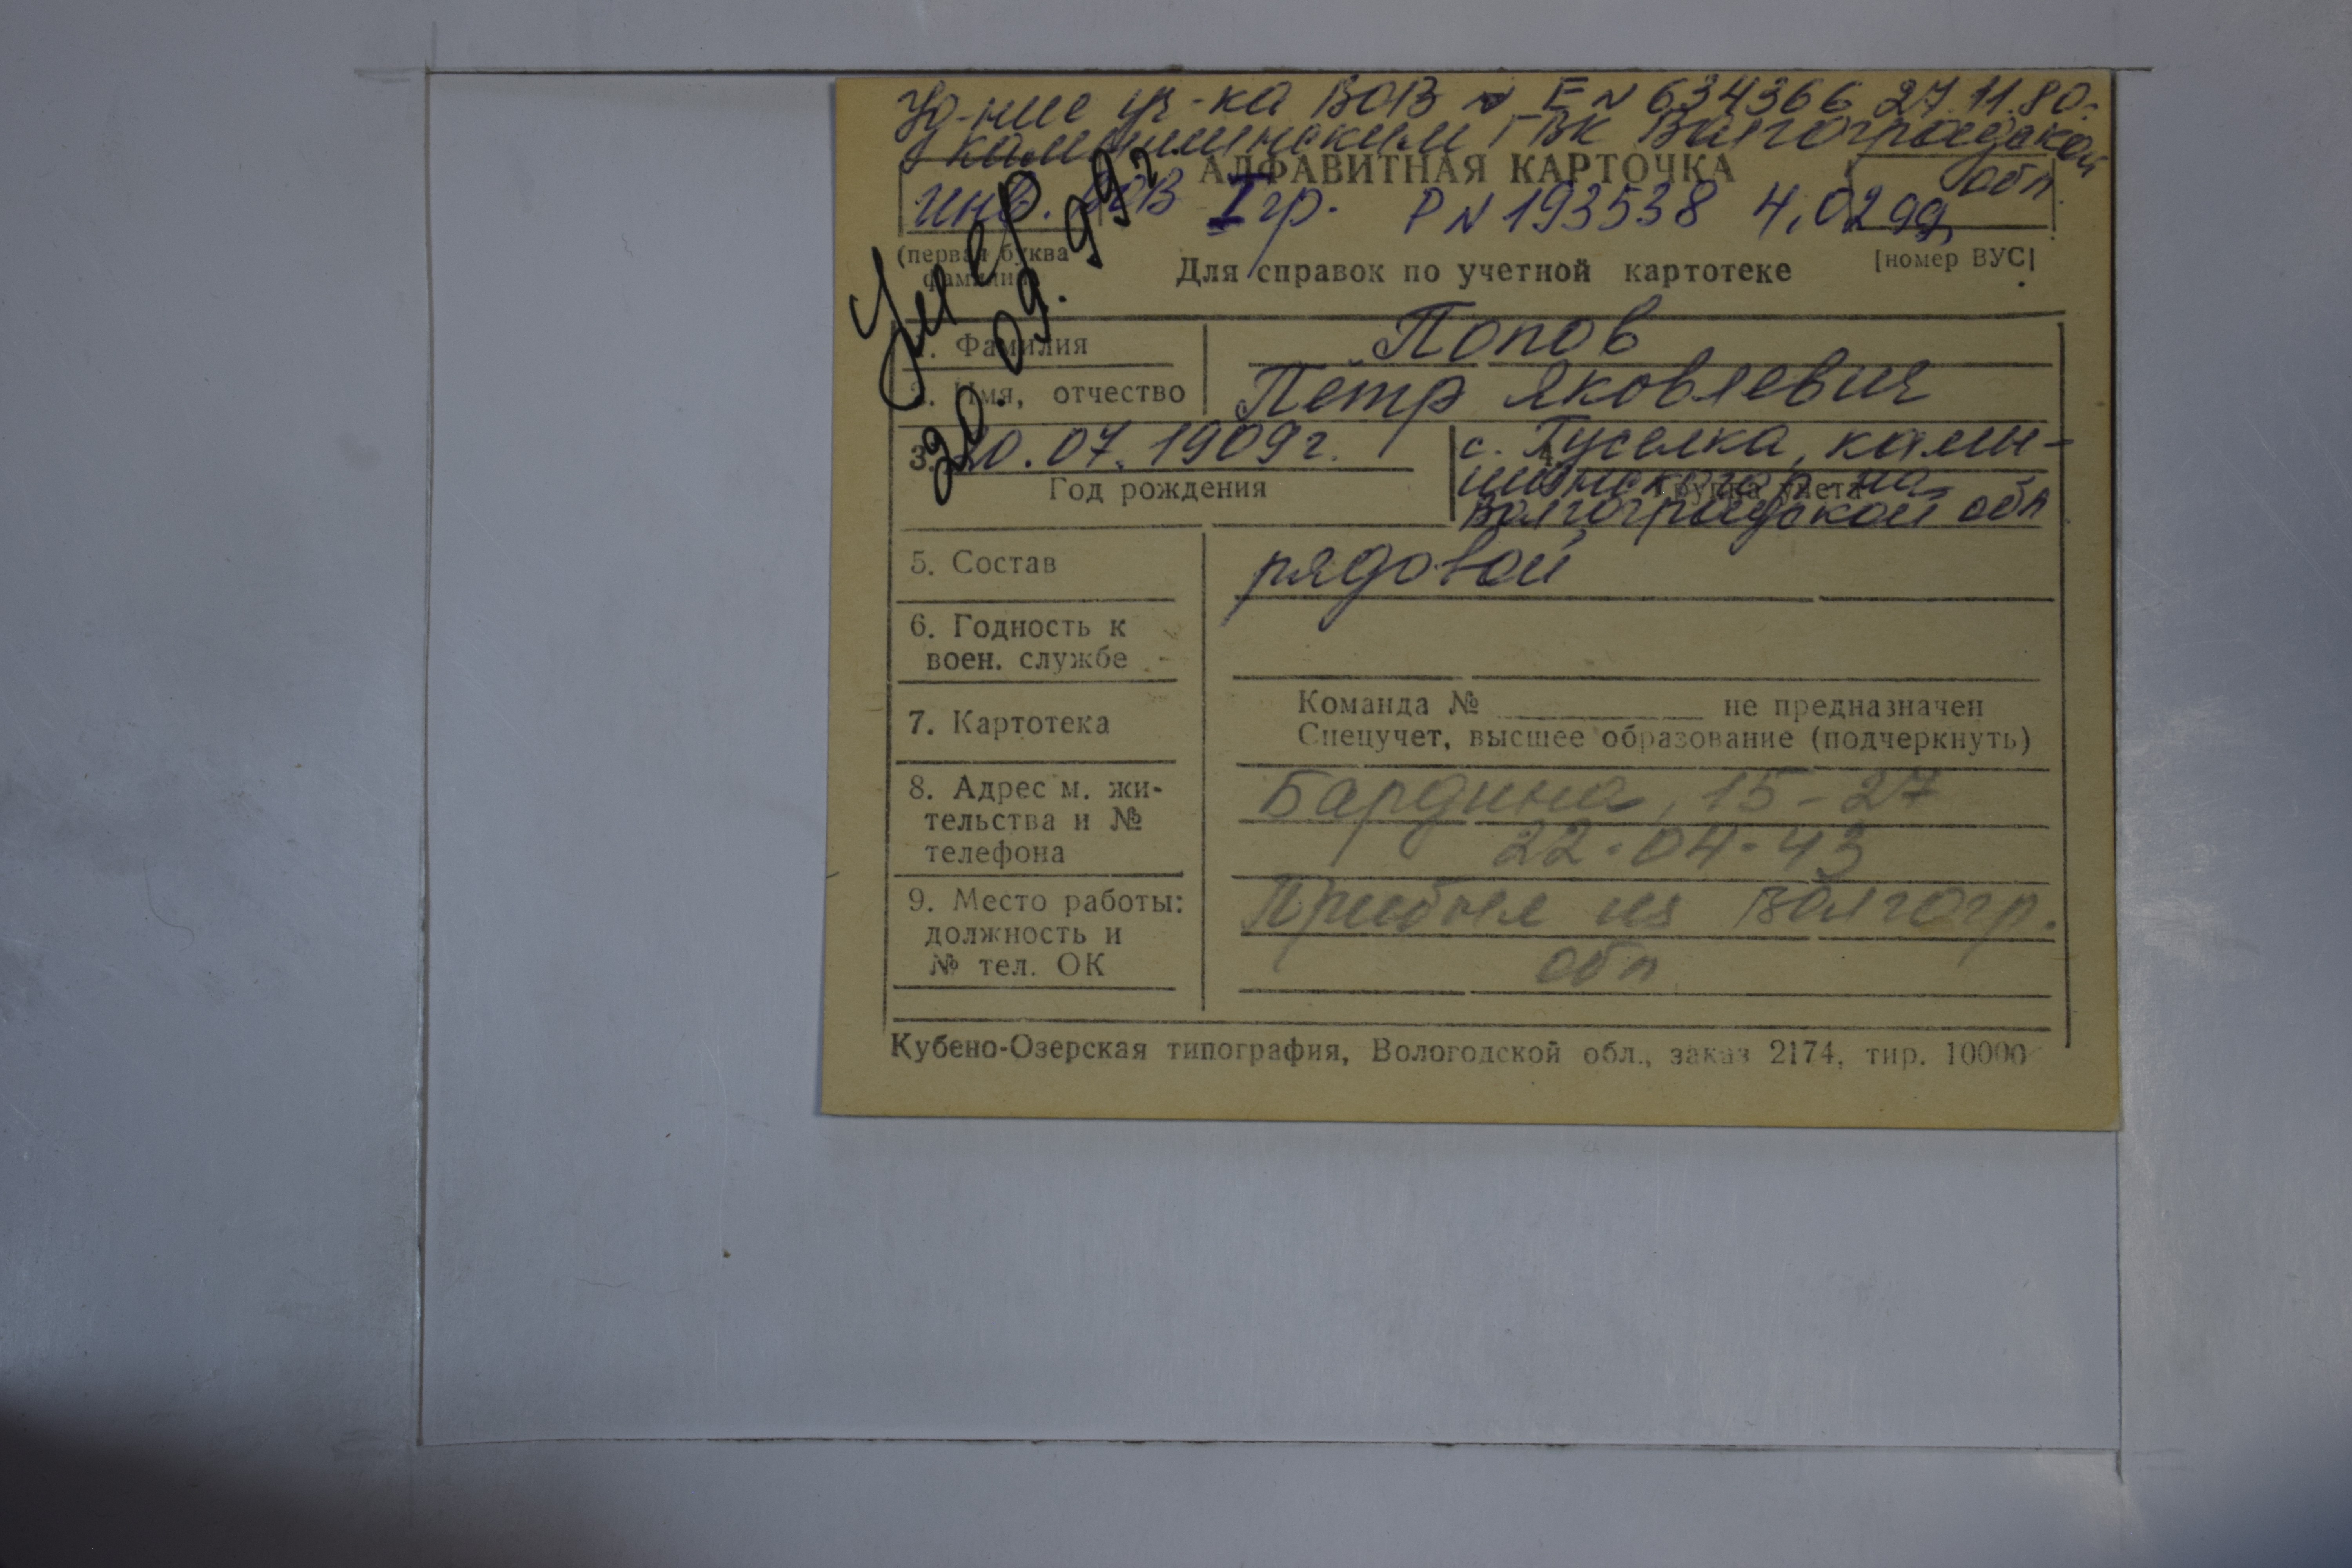 Уд-ние уч-ка ВОВ Е № 634366 27.11.80.
Камышинским ГВК Волгоградской
обл.
АЛФАВИТНАЯ КАРТОЧКА
инв. ВОВ I гр. Р № 193538 4.02.99
(первая буква
фамилии)
Для справок по учетной картотеке
[номер ВУС]
Умер
20.09.99г
1. Фамилия
Попов
2. Имя, отчество
Петр Яковлевич
3. 10.07.1909г.
Год рождения
4. с. Гуселка, Камы-
шинского р-на
Группа учета
Волгоградской обл
5. Состав
рядовой
6. Годность к
воен. службе
7. Картотека
Команда № ____________ не предназначен
Спецучет, высшее образование (подчеркнуть)
8. Адрес м. жи-
тельства и №
телефона
Бардина, 15-27
22-04-43
9. Место работы:
должность и
№ тел. ОК
Прибыл из Волгогр.
обл
Кубено-Озерская типография, Вологодской обл., заказ 2174, тир. 10000